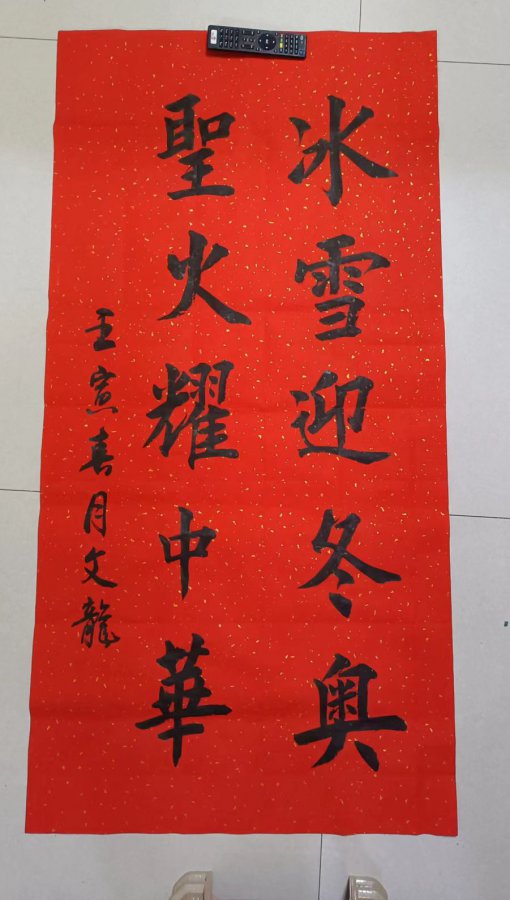 冰雪迎冬奥
聖火耀中華
王寅春月文龍